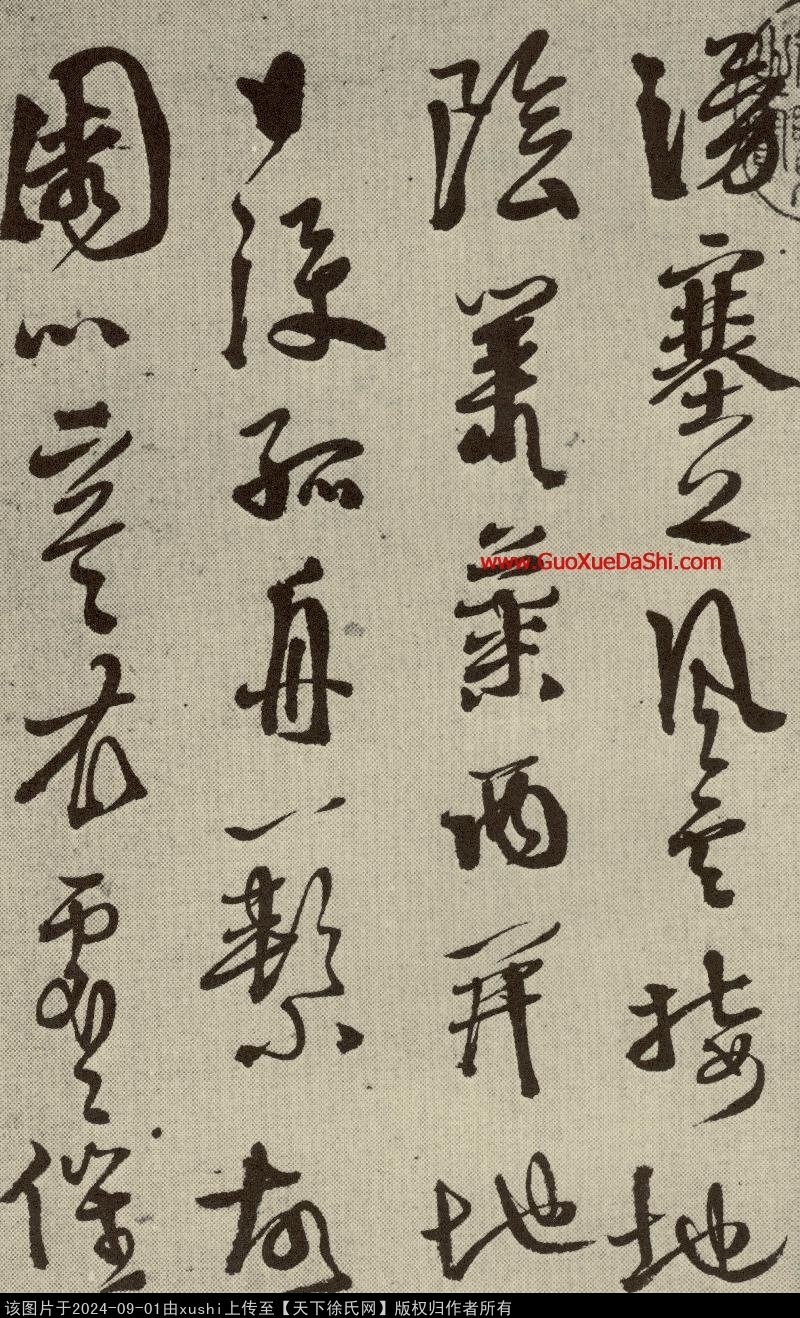 湧塞上風雲接地
陰叢菊兩開他
日淚孤舟一繫故
園心寒衣處〻催
www.GuoXueDaShi.com
该图片于2024-09-01由xushi上传至【天下徐氏网】版权归作者所有